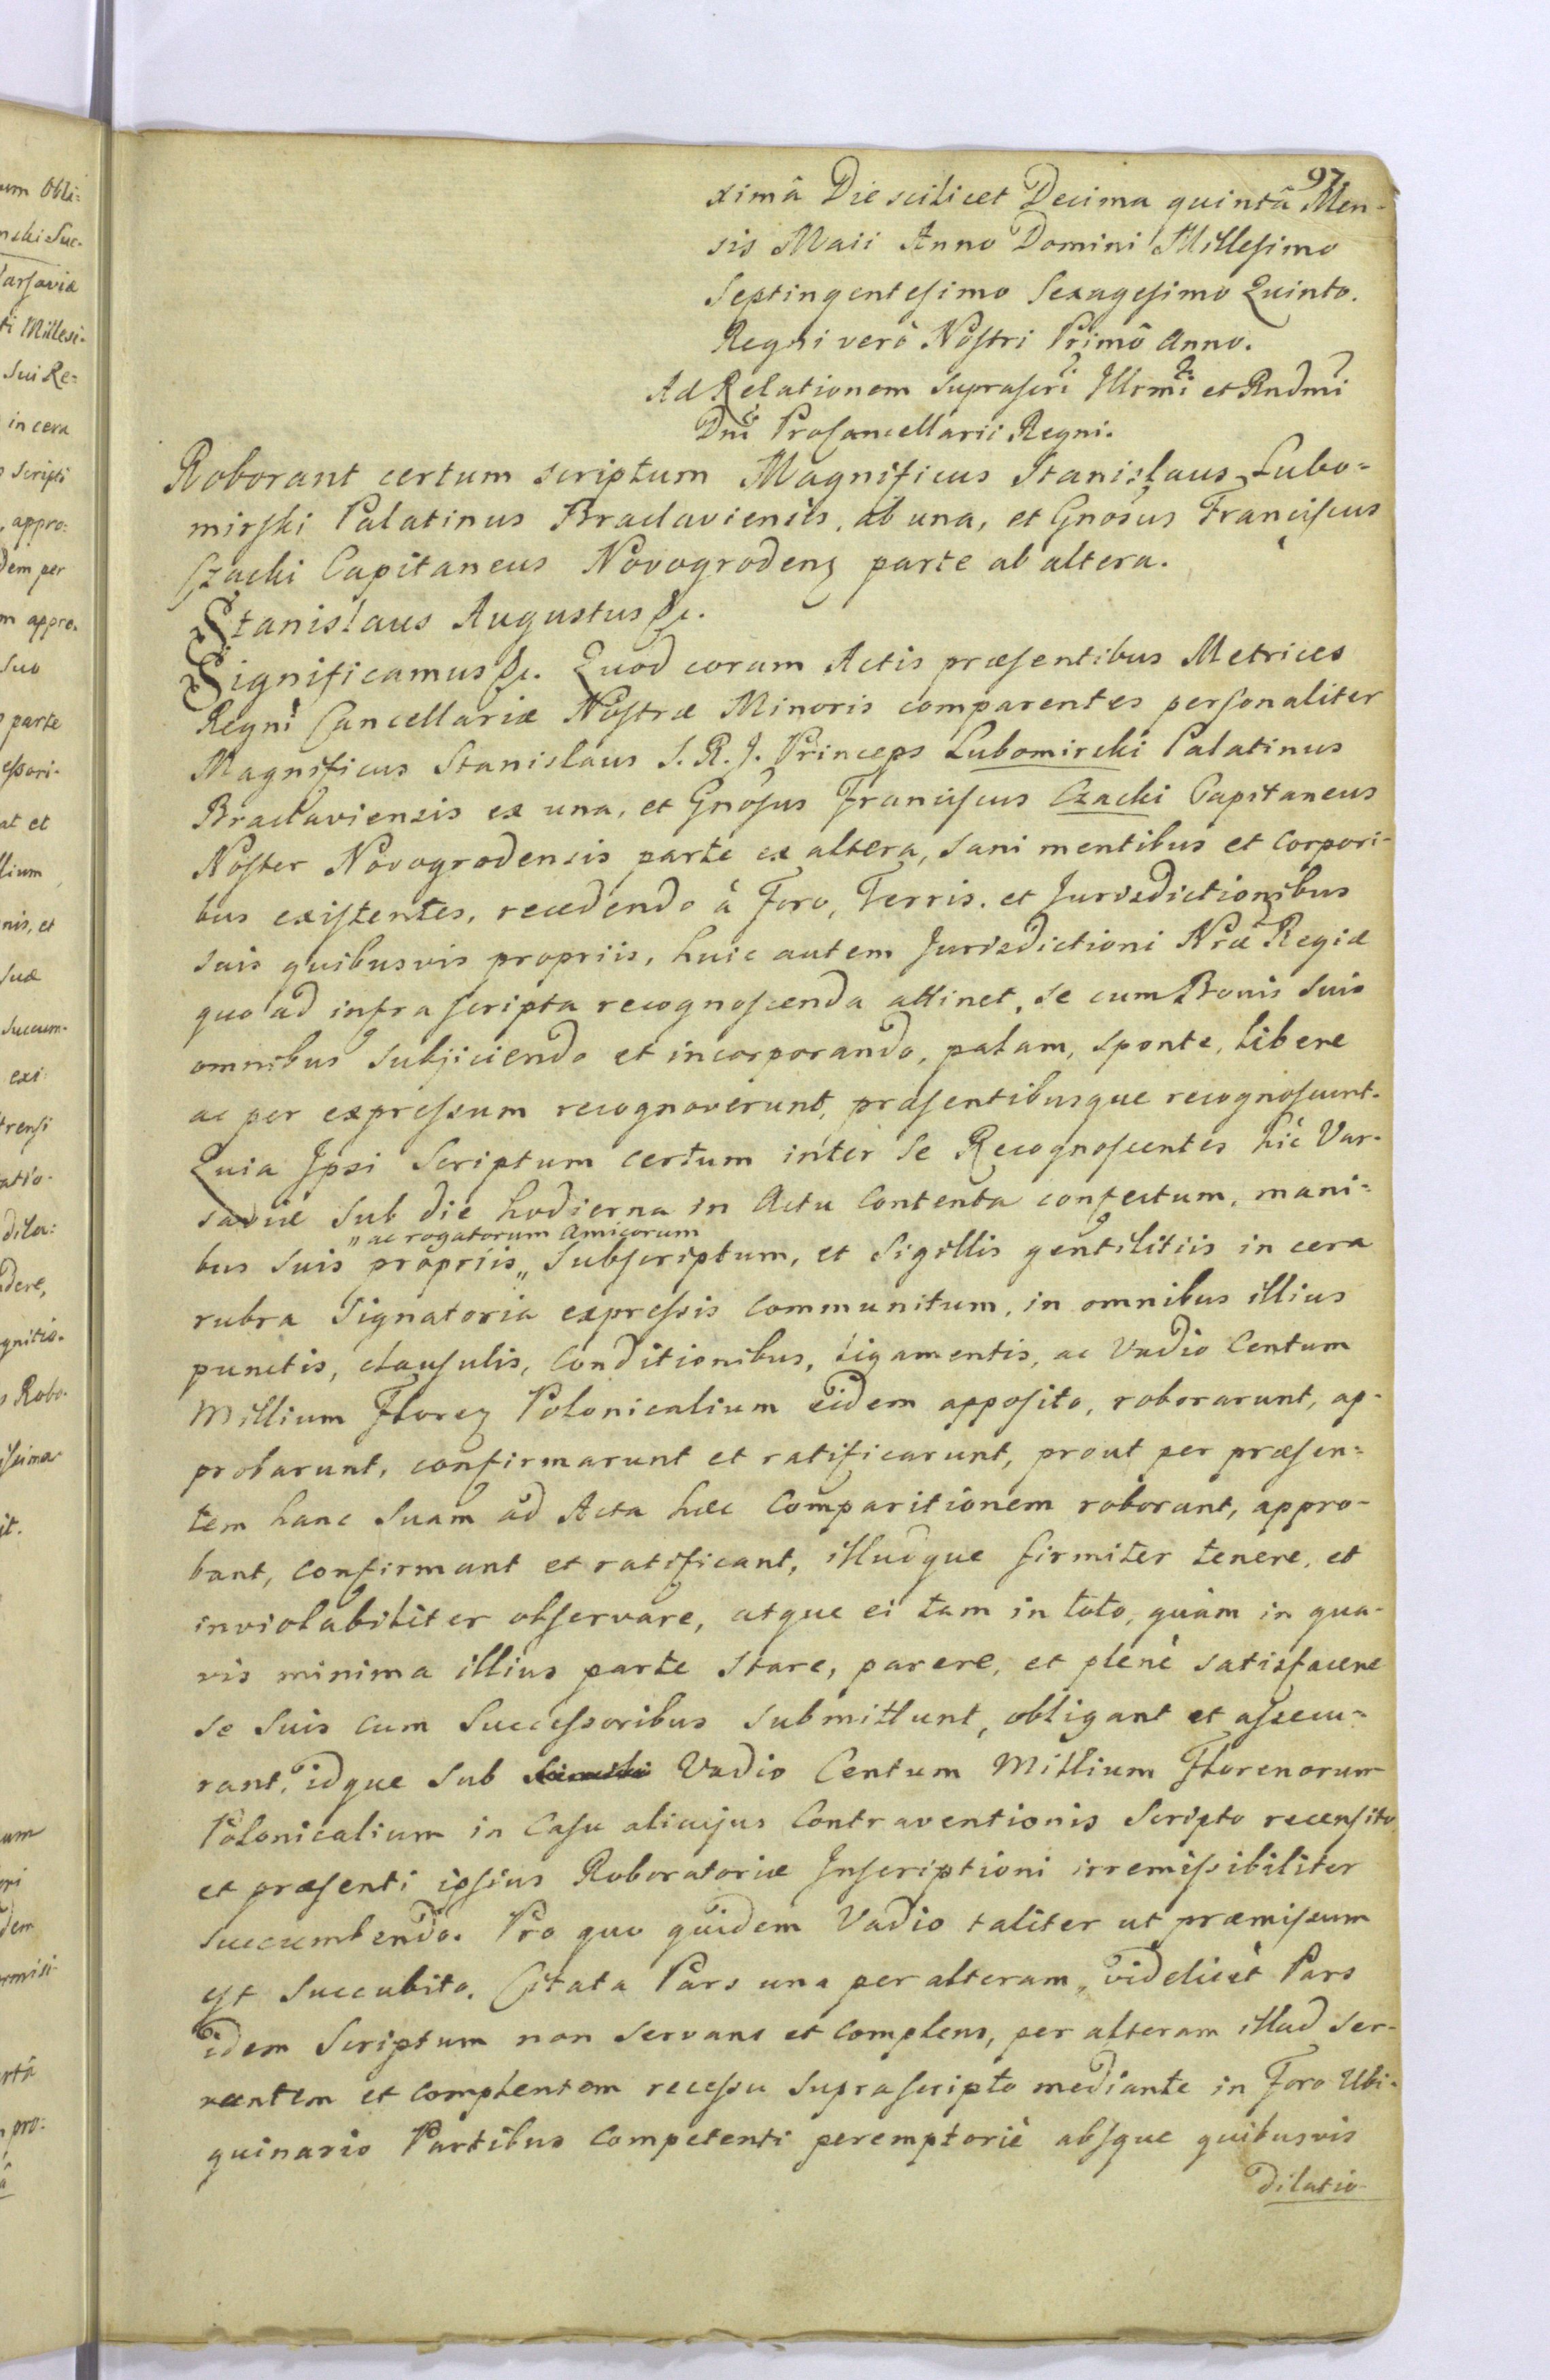 97
ximâ Die scilicet Decima quintâ Men-
sis Maii Anno Domini Millesimo
Septingentesimo Sexagesimo Quinto.
Regni verò Nostri Primô Anno.
Ad Relationem suprascri Illrmi et Rndmi
Dni Procancellarii Regni.
Roborant certum scriptum Magnificus Stanislaus Lubo=
mirski Palatinus Braclaviensis, ab una, et Gnosus Franciscus
Czacki Capitaneus Novogrodens parte ab altera.
Stanislaus Augustus &c.
Significamus &c. Quod coram Actis præsentibus Metrices
Regni Cancellariæ Nostræ Minoris comparentes personaliter
Magnificus Stanislaus S. R. J. Princeps Lubomirski Palatinus
Braclaviensis ex una, et Gnosus Franciscus Czacki Capitaneus
Noster Novogrodensis parte ex altera, sani mentibus et corpori-
bus existentes, recedendo à Foro, Terris, et Jurisdictionibus
suis quibusvis propriis, huic autem Jurisdictioni Nræ Regiæ
quo ad infra scripta recognoscenda attinet, se cum Bonis suis
omnibus subjiciendo et incorporando, palam, sponte, libere
ac per expressum recognoverunt, præsentibusque recognoscunt.
Quia Ipsi Scriptum certum inter se Recognoscentes hìc Var-
saviæ sub die hodierna in Actu Contenta confectum, mani=
" ac rogatorum Amicorum
bus suis propriis " subscriptum, et Sigillis gentilitiis in cera
rubra Signatoria expressis communitum, in omnibus illius
punctis, clausulis, Conditionibus, ligamentis, ac Vadio Centum
Millium Florez Polonicalium eidem apposito, roborarunt, ap-
probarunt, confirmarunt et ratificarunt, prout per præsen=
tem hanc suam ad Acta hæc Comparitionem roborant, appro-
bant, confirmant et ratificant, illudque firmiter tenere, et
inviolabiliter observare, atque ei tam in toto, quàm in qua-
vis minima illius parte stare, parere, et plenè satisfacere
se suis cum Successoribus submittunt, obligant et assecu=
rant, idque sub Vadio Centum Millium Florenorum
Polonicalium in Casu alicujus Contraventionis Scripto recensito
et præsenti ipsius Roboratoriæ Inscriptioni irremissibiliter
succumbendo. Pro quo quidem Vadio taliter ut præmissum
est succubito. Citata Pars una per alteram, videlicèt Pars
idem Scriptum non servans et complens, per alteram illud ser-
vantem et complentem recessu suprascripto mediante in Foro Ubi-
quinario Partibus Competenti peremptoriè absque quibusvis
dilatio